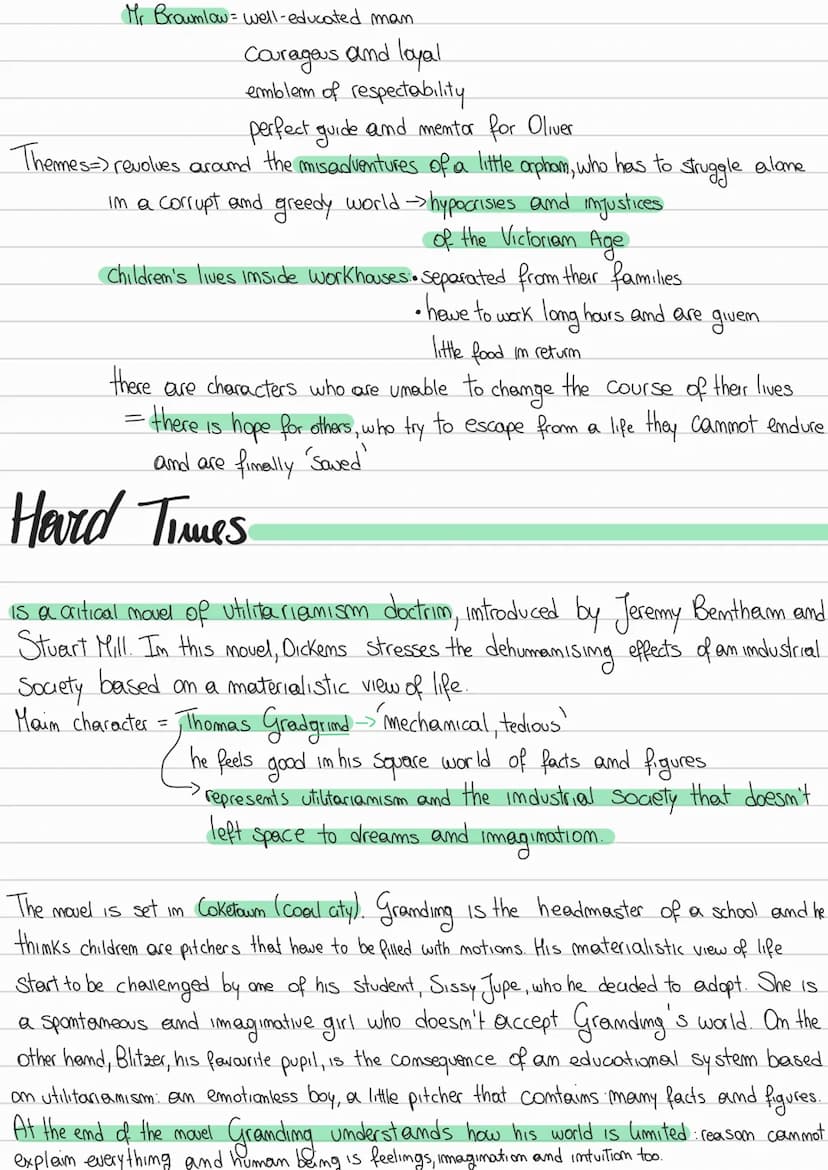 Mr Brownlow = well-educated man
couragous and loyal
emblem of respectability
perfect guide and mentor for Oliver
Themes => revolves around the misadventures of a little orphan, who has to struggle alone
in a corrupt and greedy world → hypocrisies and injustices
of the Victorian Age
Children's lives inside workhouses • separated from their families
• have to work long hours and are given
little food in return
there are characters who are unable to change the course of their lives
= there is hope for others, who try to escape from a life they cannot endure
and are finally 'saved'
Hard Times
is a critical novel of utilitarianism doctrin, introduced by Jeremy Bentham and
Stuart Mill. In this novel, Dickens stresses the dehumanising effects of an industrial
society based on a materialistic view of life.
Main character = Thomas Gradgrind → 'mechanical, tedious'
he feels good in his square world of facts and figures
represents utilitarianism and the industrial society that doesn't
left space to dreams and imagination.
The novel is set in Coketown (coal city). Granding is the headmaster of a school and he
thinks children are pitchers that have to be filled with notions. His materialistic view of life
start to be challenged by one of his student, Sissy Jupe, who he decided to adopt. She is
a spontaneous and imaginative girl who doesn't accept Granding's world. On the
other hand, Blitzer, his favourite pupil, is the consequence of an educational system based
on utilitarianism: an emotionless boy, a little pitcher that contains many facts and figures.
At the end of the novel Granding understands how his world is limited: reason cannot
explain everything and human being is feelings, imagination and intuition too.